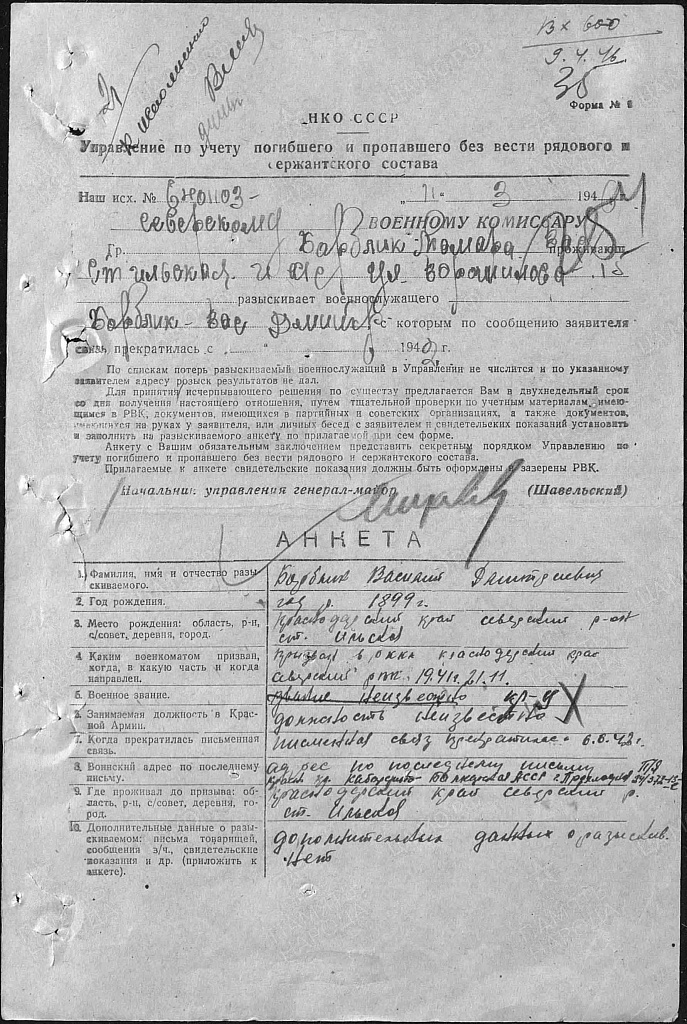 Вх 600
9.4.46
30
Форма № 
НКО СССР
Управление по учету погибшего и пропавшего без вести рядового и
сержантского состава
Наш исх. №
"11" 3 194
Северскому ВОЕННОМУ КОМИССАРУ
Гр. Барблик Тамара Вас проживающ
ул Ворошилова 15
разыскивает военнослужащего
Барблик Вас с которым по сообщению заявителя
связь прекратилась с " " 6 1942 г.
По спискам потерь разыскиваемый военнослужащий в Управлении не числится и по указанному
заявителем адресу розыск результатов не дал.
Для принятия исчерпывающего решения по существу предлагается Вам в двухнедельный срок
со дня получения настоящего отношения, путем тщательной проверки по учетным материалам, имею-
щимся в РВК, документов, имеющихся в партийных и советских организациях, а также документов,
имеющихся на руках у заявителя, или личных бесед с заявителем и свидетельских показаний установить
и заполнить на разыскиваемого анкету по прилагаемой при сем форме.
Анкету с Вашим обязательным заключением представить секретным порядком Управлению по
учету погибшего и пропавшего без вести рядового и сержантского состава.
Прилагаемые к анкете свидетельские показания должны быть оформлены и заверены РВК.
Начальник управления генерал-майор (Шавельский)
АНКЕТА
1. Фамилия, имя и отчество разы-
скиваемого.
Барблик Василий Дмитриевич
2. Год рождения.
год р. 1899 г.
3. Место рождения: область, р-н,
с/совет, деревня, город.
Краснодарский край северский р-он
ст. Ильская
4. Каким военкоматом призван,
когда, в какую часть и когда
направлен.
призван в РККА краснодарский край
северский рвк 1941 г. 21.11.
5. Военное звание.
звание неизвестно кр-ц
6. Занимаемая должность в Крас-
ной Армии.
должность неизвестно
7. Когда прекратилась письменная
связь.
письменная связь прекратилась 6.6.42 г.
8. Воинский адрес по последнему
письму.
адрес по последнему письму
АССР г. Прохладный
9. Где проживал до призыва: об-
ласть, р-н, с/совет, деревня, го-
род.
Краснодарский край северский р.
ст. Ильская
10. Дополнительные данные о разы-
скиваемом: письма товарищей,
сообщения з/ч., свидетельские
показания и др. (приложить к
анкете).
дополнительных данных о разыскив.
нет